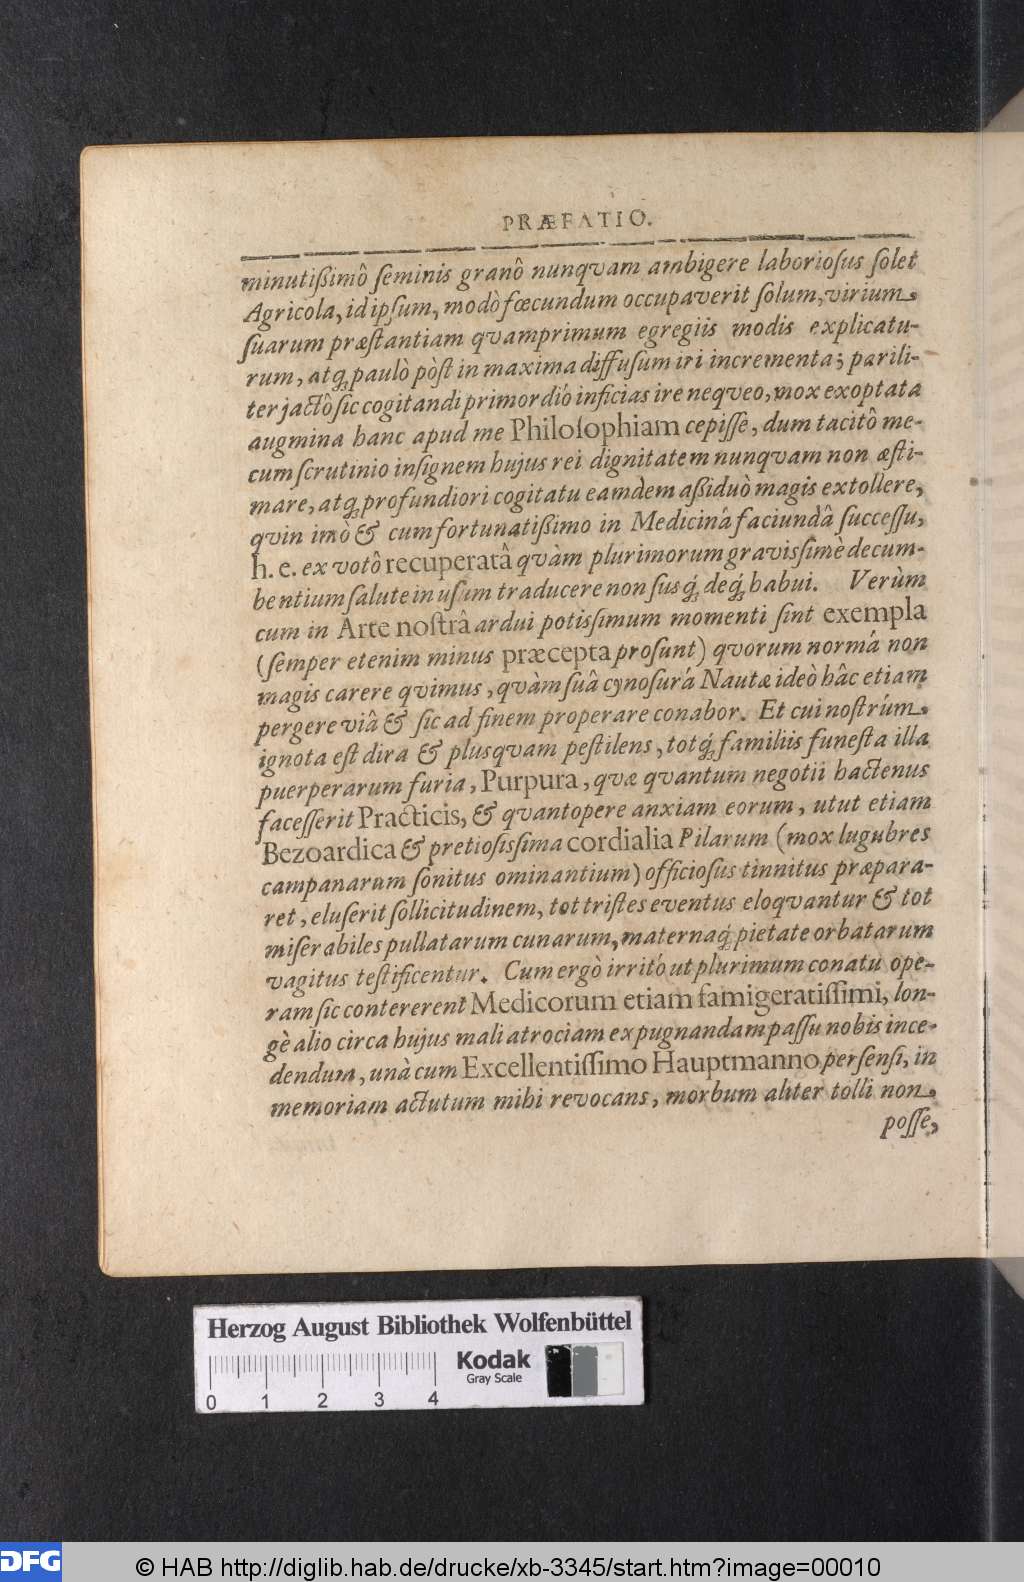 PRÆFATIO.
minutißimô ſeminis granô nunqvam ambigere laborioſus ſolet
Agricola, id ipſum, modò fœcundum occupaverit ſolum, virium
ſuarum præſtantiam qvamprimum egregiis modis explicatu-
rum, atq́; paulò pòſt in maxima diffuſum iri incrementa; parili-
ter jactô ſic cogitandi primordiô inficias ire neqveo, mox exoptata
augmina hanc apud me Philoſophiam cepiſſe, dum tacitô me-
cum ſcrutinio inſignem hujus rei dignitatem nunqvam non æſti-
mare, atq́; profundiori cogitatu eamdem aßiduò magis extollere,
qvin imò & cum fortunatißimo in Medicinâ faciundâ ſucceſſu,
h. e. ex votô recuperatâ qvàm plurimorum gravisſimè decum-
bentium ſalute in uſum traducere non ſusq́; deq́; habui. Verùm
cum in Arte noſtrâ ardui potisſimum momenti ſint exempla
(ſemper etenim minus præcepta proſunt) qvorum normâ non
magis carere qvimus, qvàm ſuâ cynoſurâ Nautæ ideò hâc etiam
pergere viâ & ſic ad finem properare conabor. Et cui noſtrûm
ignota eſt dira & plusqvam peſtilens, totq́; familiis funeſta illa
puerperarum furia, Purpura, qvæ qvantum negotii hactenus
faceſſerit Practicis, & qvantopere anxiam eorum, utut etiam
Bezoardica & pretioſisſima cordialia Pilarum (mox lugubres
campanarum ſonitus ominantium) officioſus tinnitus præpara-
ret, eluſerit ſollicitudinem, tot triſtes eventus eloqvantur & tot
miſerabiles pullatarum cunarum, maternaq́; pietate orbatarum
vagitus teſtificentur. Cum ergò irritô ut plurimum conatu ope-
ram ſic contererent Medicorum etiam famigeratiſſimi, lon-
gè alio circa hujus mali atrociam expugnandam paſſu nobis ince-
dendum, unà cum Excellentiſſimo Hauptmanno perſenſi, in
memoriam actutum mihi revocans, morbum aliter tolli non
poſſe,
Herzog August Bibliothek Wolfenbüttel
Kodak
Gray Scale
0 1 2 3 4
DFG
© HAB http://diglib.hab.de/drucke/xb-3345/start.htm?image=00010